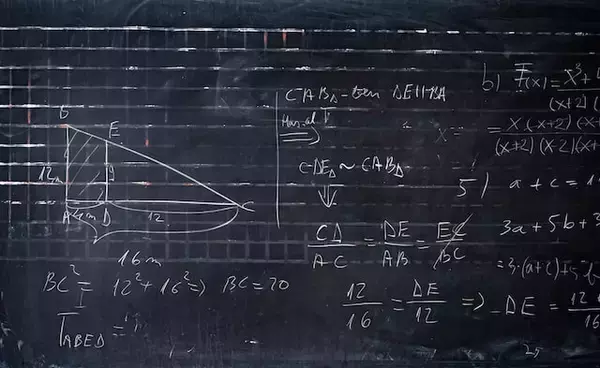 B
E
12m
9
A 4m D 12 C
16m
BC² = 12² + 16² => BC = 20
T_ABED =
CAB△ - ben DE||BA
=>
CDE△ ~ CAB△
⇓
CD/AC = DE/AB = EC/BC
12/16 = DE/12 => DE = 12
16
b) F(x) = x³+
(x+2)(
x =
= x·(x+2)(x
(x+2)(x-2)(x
5) a + c = 1
3a + 5b + 3
= 3·(a+c)+5
25